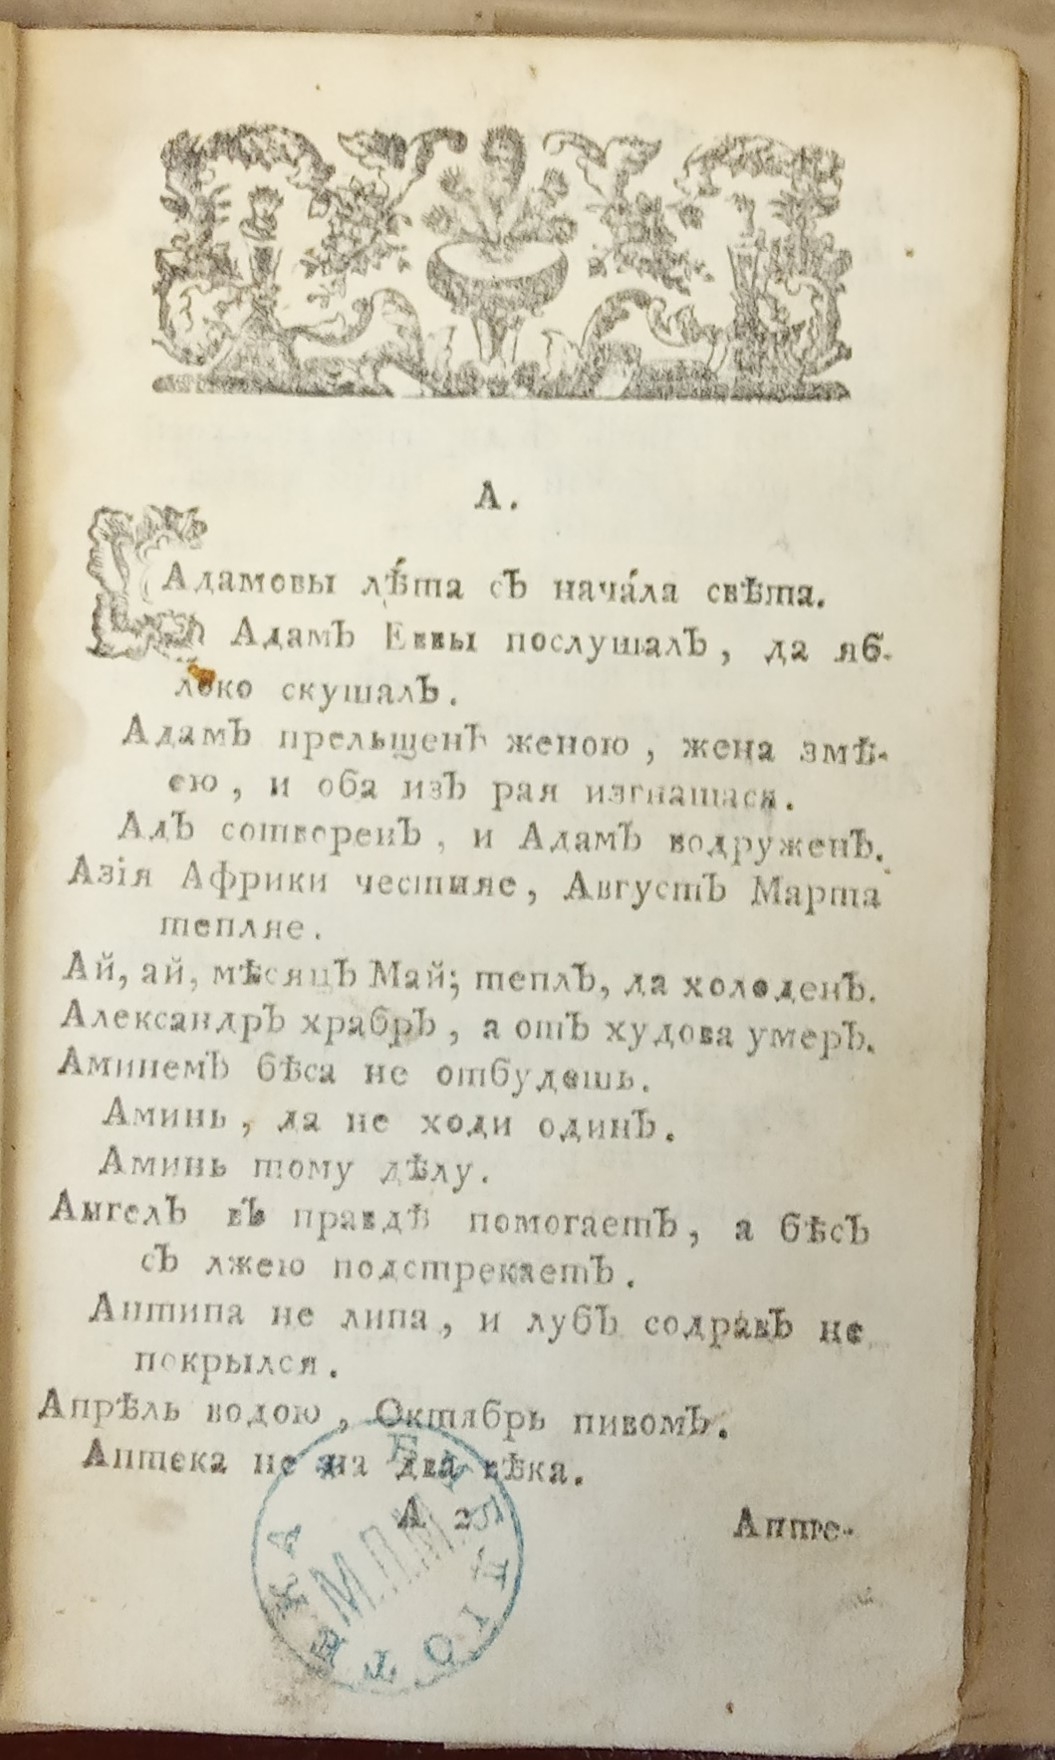 А.
Адамовы лѣ́та съ нача́ла свѣта.
Адамъ Еввы послушалъ, да яб-
локо скушалъ.
Адамъ прельщенъ женою, жена змѣ-
ею, и оба изъ рая изгнашася.
Адъ сотворенъ, и Адамъ водруженъ.
Азія Африки честняе, Августъ Марта
тепляе.
Ай, ай, мѣсяцъ Май; теплъ, да холоденъ.
Александръ храбръ, а отъ худова умеръ.
Аминемъ бѣса не отбудешь.
Аминь, да не ходи одинъ.
Аминь тому дѣлу.
Ангелъ въ правдѣ помогаетъ, а бѣсъ
съ лжею подстрекаетъ.
Антипа не липа, и лубъ содравъ не
покрылся.
Апрѣль водою, Октябрь пивомъ.
Аптека не на два вѣка.
А 2 Аппе-
БИБЛІОТЕКА
М.П.М.